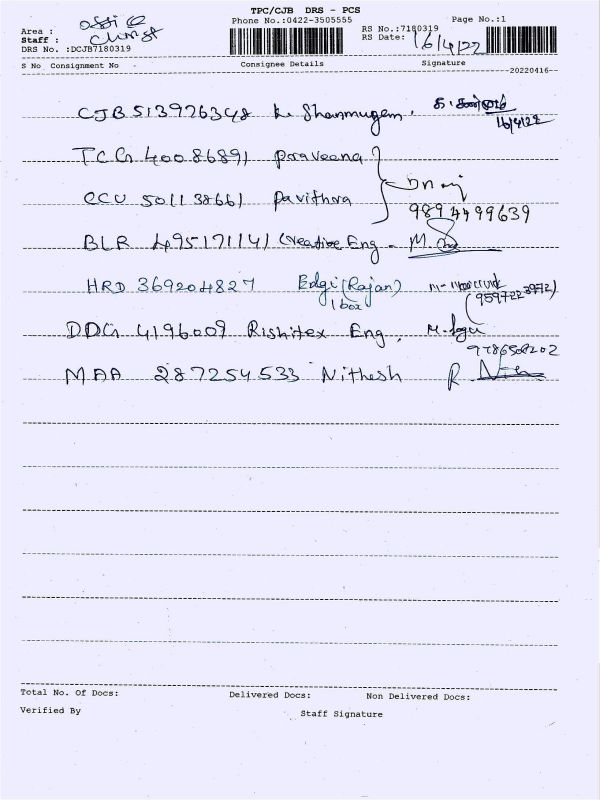 TPC/CJB DRS - PCS
Phone No.:0422-3505555 Page No.:1
Area :
Staff : RS No.:7180319
DRS No. :DCJB7180319 RS Date: 16/4/22
S No Consignment No Consignee Details Signature
20220416
CJB 513926348 K. Shanmugam.
16/4/22
TCG 40086891 praveena
CCU 501138661 Pavithra
9894499639
BLR 495171141 Creative Eng - M.
HRD 369204827 Edgi (Rajan)
1 box
DDG 4196009 Rishitex Eng,
9786508202
MAA 287254533 Nithesh R.
Total No. Of Docs: Delivered Docs: Non Delivered Docs:
Verified By Staff Signature